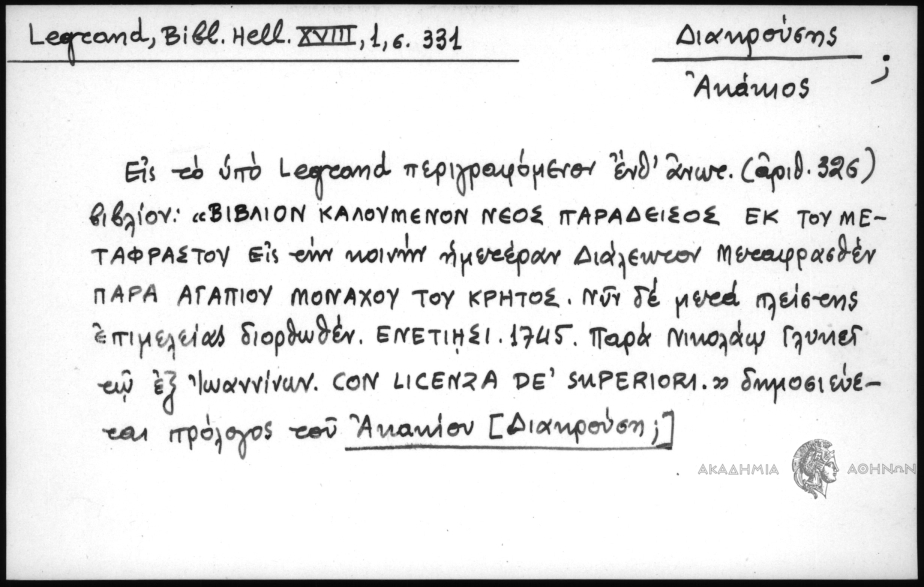 Legrand, Bibl. Hell. XVIII, 1, σ. 331
Διακρούσης ;
Ἀκάκιος
Εἰς τὸ ὑπὸ Legrand περιγραφόμενον ἔνθ' ἄνωτ. (ἀριθ. 326)
βιβλίον: «ΒΙΒΛΙΟΝ ΚΑΛΟΥΜΕΝΟΝ ΝΕΟΣ ΠΑΡΑΔΕΙΣΟΣ ΕΚ ΤΟΥ ΜΕ-
ΤΑΦΡΑΣΤΟΥ Εἰς τὴν κοινὴν ἡμετέραν Διάλεκτον Μεταφρασθὲν
ΠΑΡΑ ΑΓΑΠΙΟΥ ΜΟΝΑΧΟΥ ΤΟΥ ΚΡΗΤΟΣ. Νῦν δὲ μετὰ πλείστης
ἐπιμελείας διορθωθέν. ΕΝΕΤΙῌΣΙ. 1745. Παρὰ Νικολάῳ Γλυκεῖ
τῷ ἐξ Ἰωαννίνων. CON LICENZA DE' SUPERIORI.» δημοσιεύε-
ται πρόλογος τοῦ Ἀκακίου [Διακρούση;]
ΑΚΑΔΗΜΙΑ ΑΘΗΝΩΝ